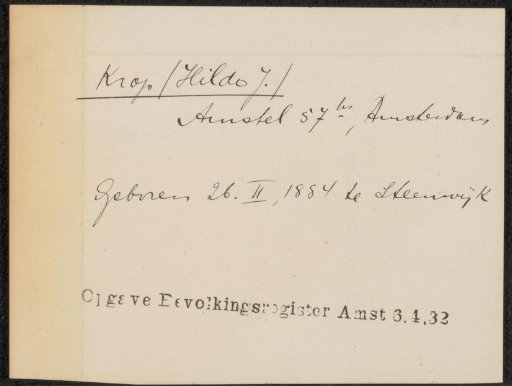 Krop (Hildo J.)
Amstel 57 hs, Amsterdam
Geboren 26. II, 1884 te Steenwijk
Opgave Bevolkingsregister Amst 6.4.32